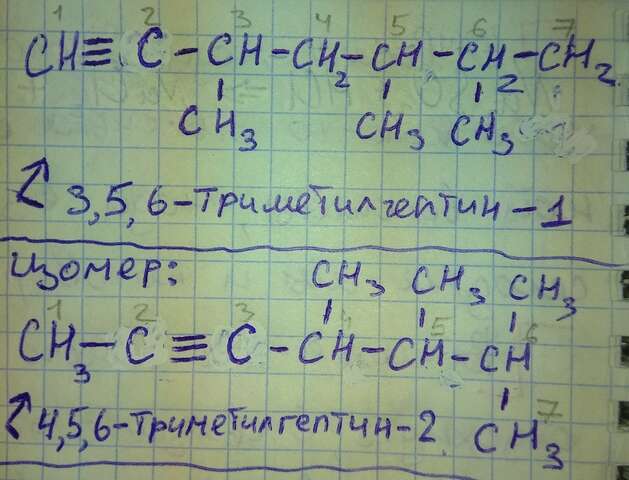 1 2 3 4 5 6 7
CH≡C-CH-CH2-CH-CH2-CH2
CH3 CH3 CH3
3,5,6-триметилгептин-1
изомер:
CH3 CH3 CH3
1 2 3 4 5 6
CH3-C≡C-CH-CH-CH
4,5,6-триметилгептин-2 7
CH3